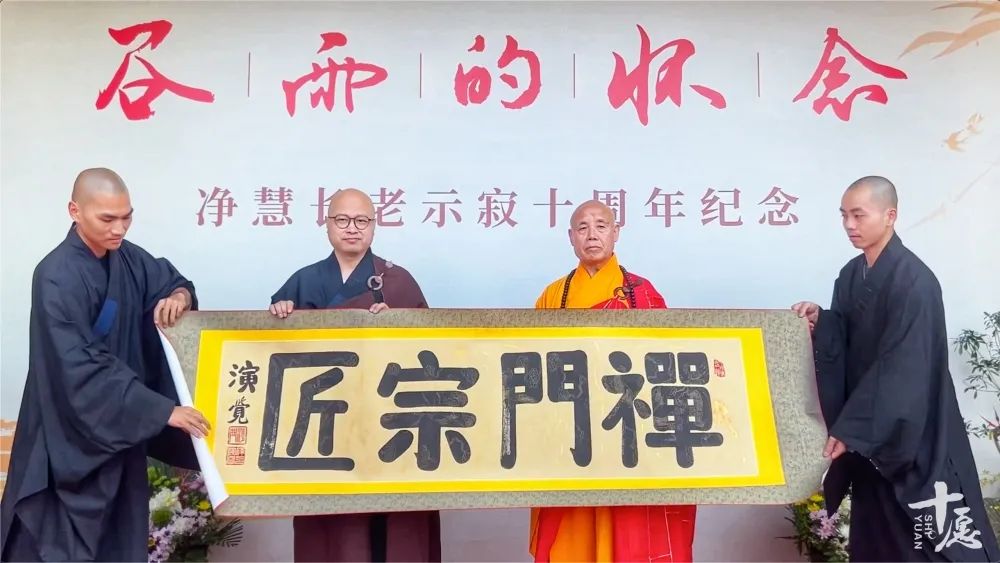 谷雨的怀念
净慧长老示寂十周年纪念
禪門宗匠
演覺
十愿
SHI YUAN